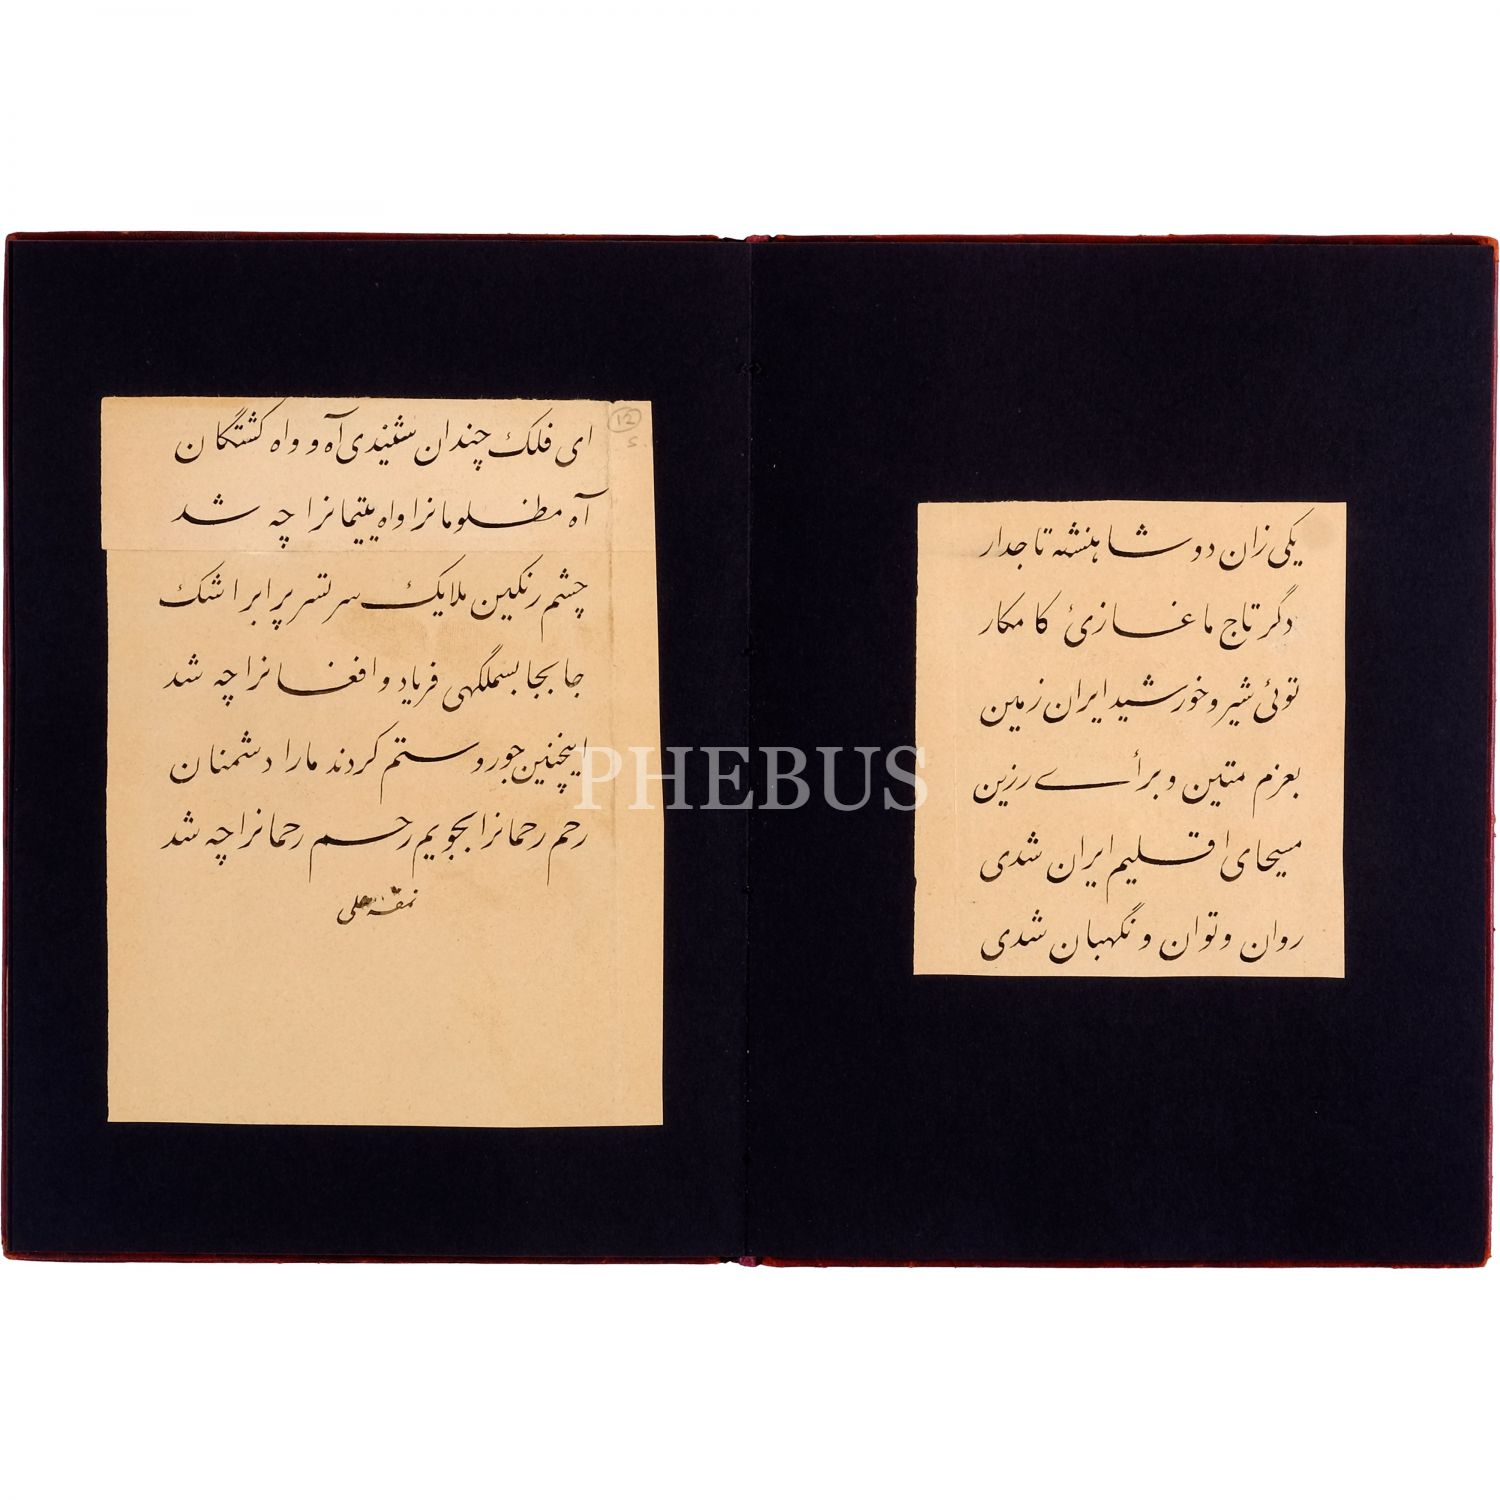 یکی زان دو شاهنشه تاجدار
دگر تاج ما غازئ کامکار
توئی شیر و خورشید ایران زمین
بعزم متین و برأے رزین
مسیحای اقلیم ایران شدی
روان و توان و نگهبان شدی
12
s.
ای فلک چندان شنیدی آه و واه کشتگان
آه مظلومانرا واه یتیمانرا چه شد
چشم رنکین ملایک سر تسر پر ابر اشک
جا بجا بسملگهی فریاد و افغانرا چه شد
اینچنین جور و ستم کردند ما را دشمنان
رحم رحمانرا بجویم رحم رحمانرا چه شد
نمقه
PHEBUS